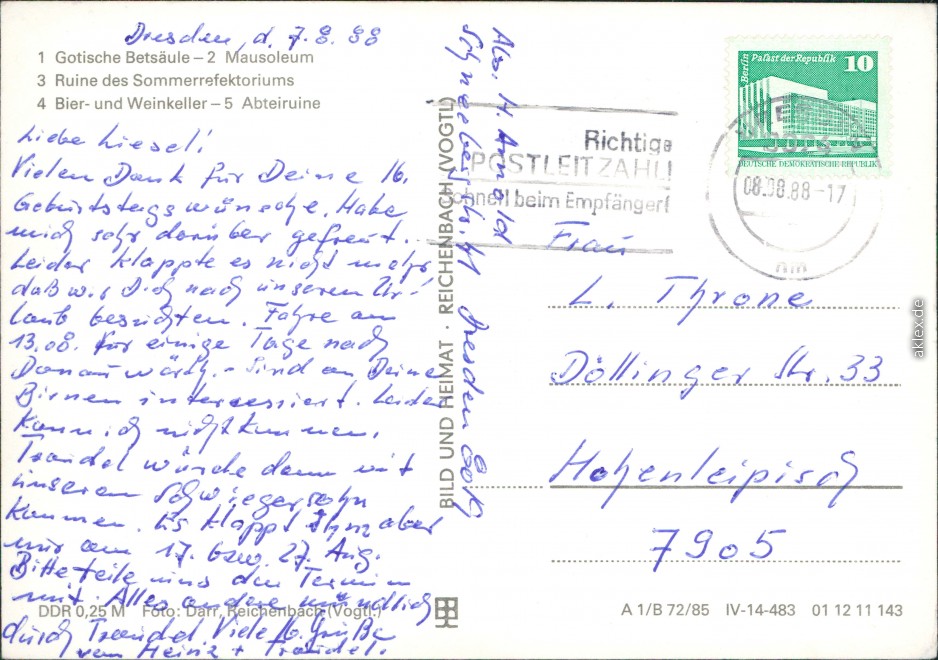 Dresden, d. 7.8.88
1 Gotische Betsäule – 2 Mausoleum
3 Ruine des Sommerrefektoriums
4 Bier- und Weinkeller – 5 Abteiruine
Liebe Liesel!
Vielen Dank für Deine lb.
Geburtstagswünsche. Habe
mich sehr darüber gefreut.
Leider klappte es nicht mehr,
daß wir Dich nach unserem Ur-
laub besuchten. Fahre am
13.08. für einige Tage nach
Donauwörth. - Sind an Deine
Birnen interessiert. Leider
kann ich nicht kommen.
Traudel würde dann mit
unserem Schwiegersohn
kommen. Es klappt aber
nur am 17. bzw. 27. Aug.
Bitte teile uns den Termin
mit. Alles andere mündlich
durch Traudel. Viele lb. Grüße
von Heinz + Traudel.
DDR 0,25 M Foto: Darr, Reichenbach (Vogtl.)
BILD UND HEIMAT · REICHENBACH (VOGTL)
Abs. H. Arnold
Dresden 8019
Richtige
POSTLEITZAHL!
schnell beim Empfänger!
Berlin Palast der Republik 10
DEUTSCHE DEMOKRATISCHE REPUBLIK
08.08.88-17
Frau
L. Throne
Döllinger Str. 33
Hohenleipisch
7905
A 1/B 72/85 IV-14-483 01 12 11 143
aklex.de